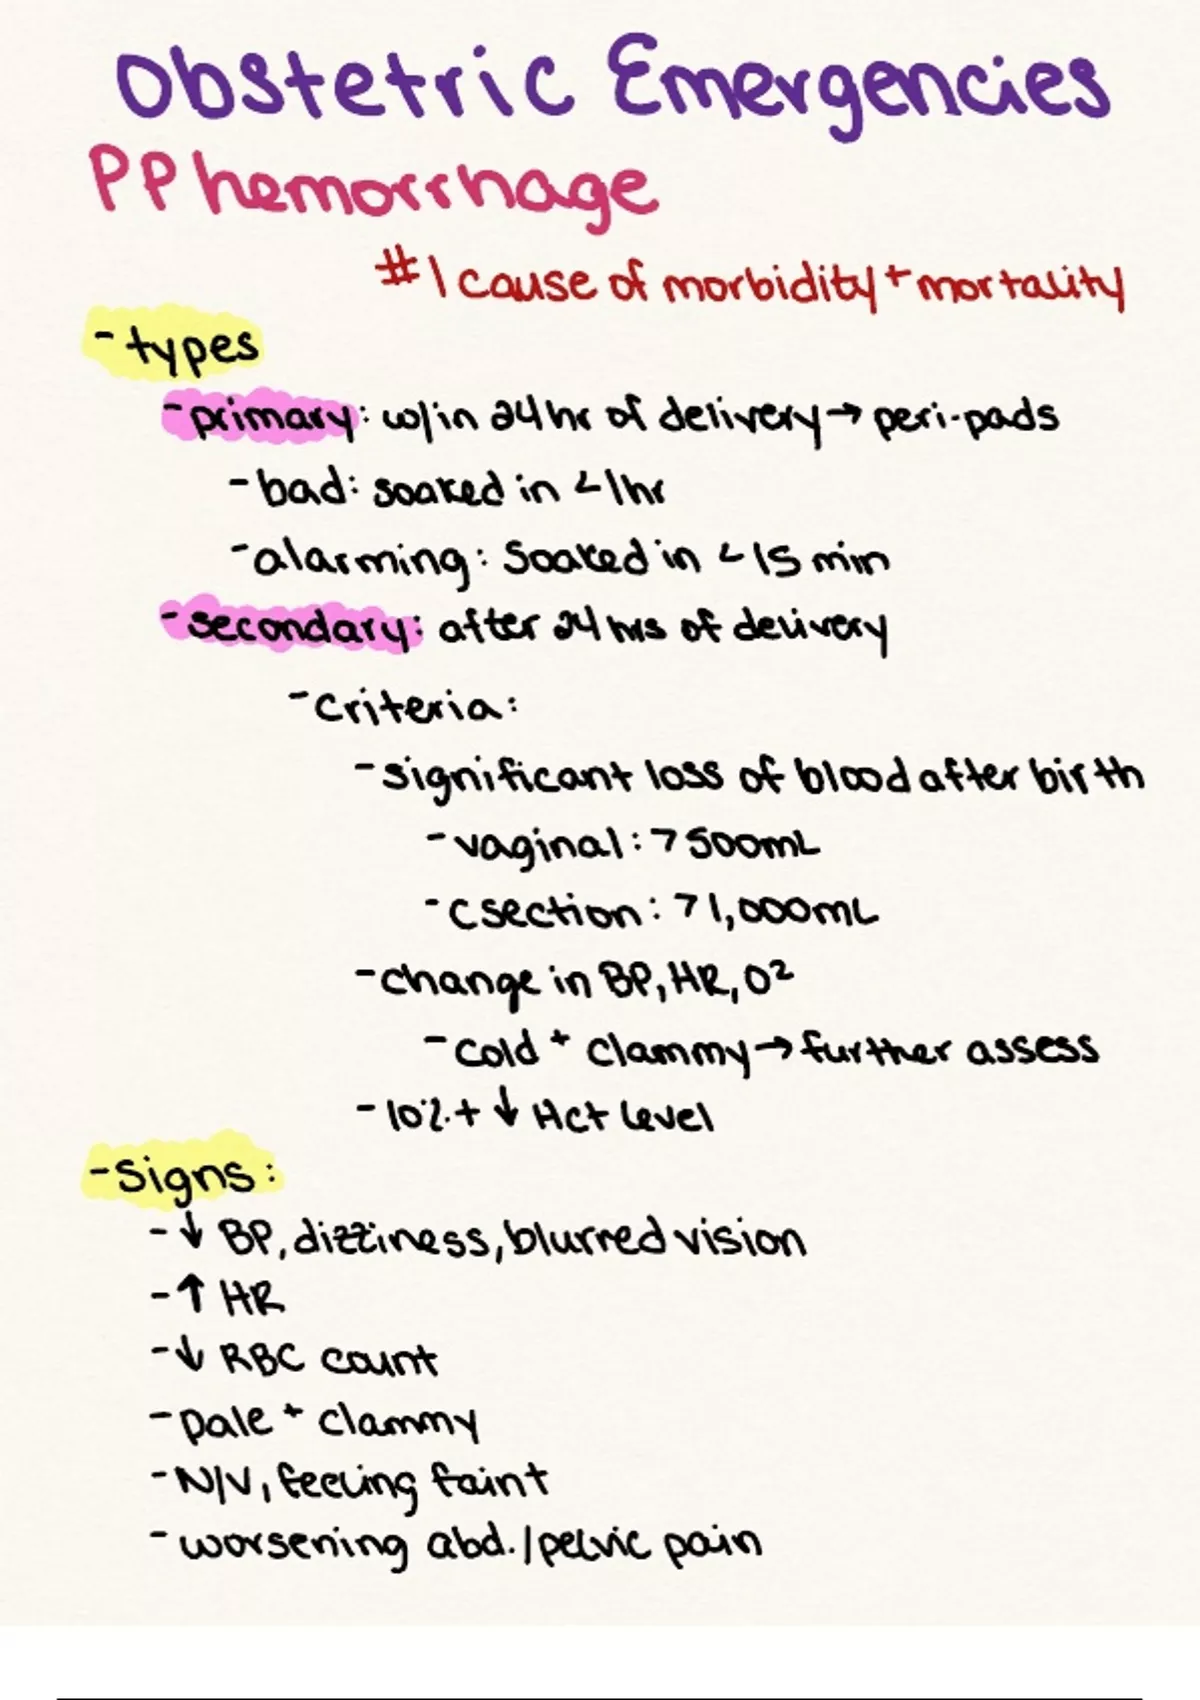 Obstetric Emergencies
PP hemorrhage
#1 cause of morbidity + mortality
- types
- primary: w/in 24hr of delivery → peri-pads
- bad: soaked in <1hr
- alarming: Soaked in <15 min
- secondary: after 24 hrs of delivery
- criteria:
- significant loss of blood after birth
- vaginal: >500mL
- csection: >1,000mL
- change in BP, HR, O²
- cold + clammy → further assess
- 10%+ ↓ Hct level
- signs:
- ↓ BP, dizziness, blurred vision
- ↑ HR
- ↓ RBC count
- pale + clammy
- N/V, feeling faint
- worsening abd./pelvic pain